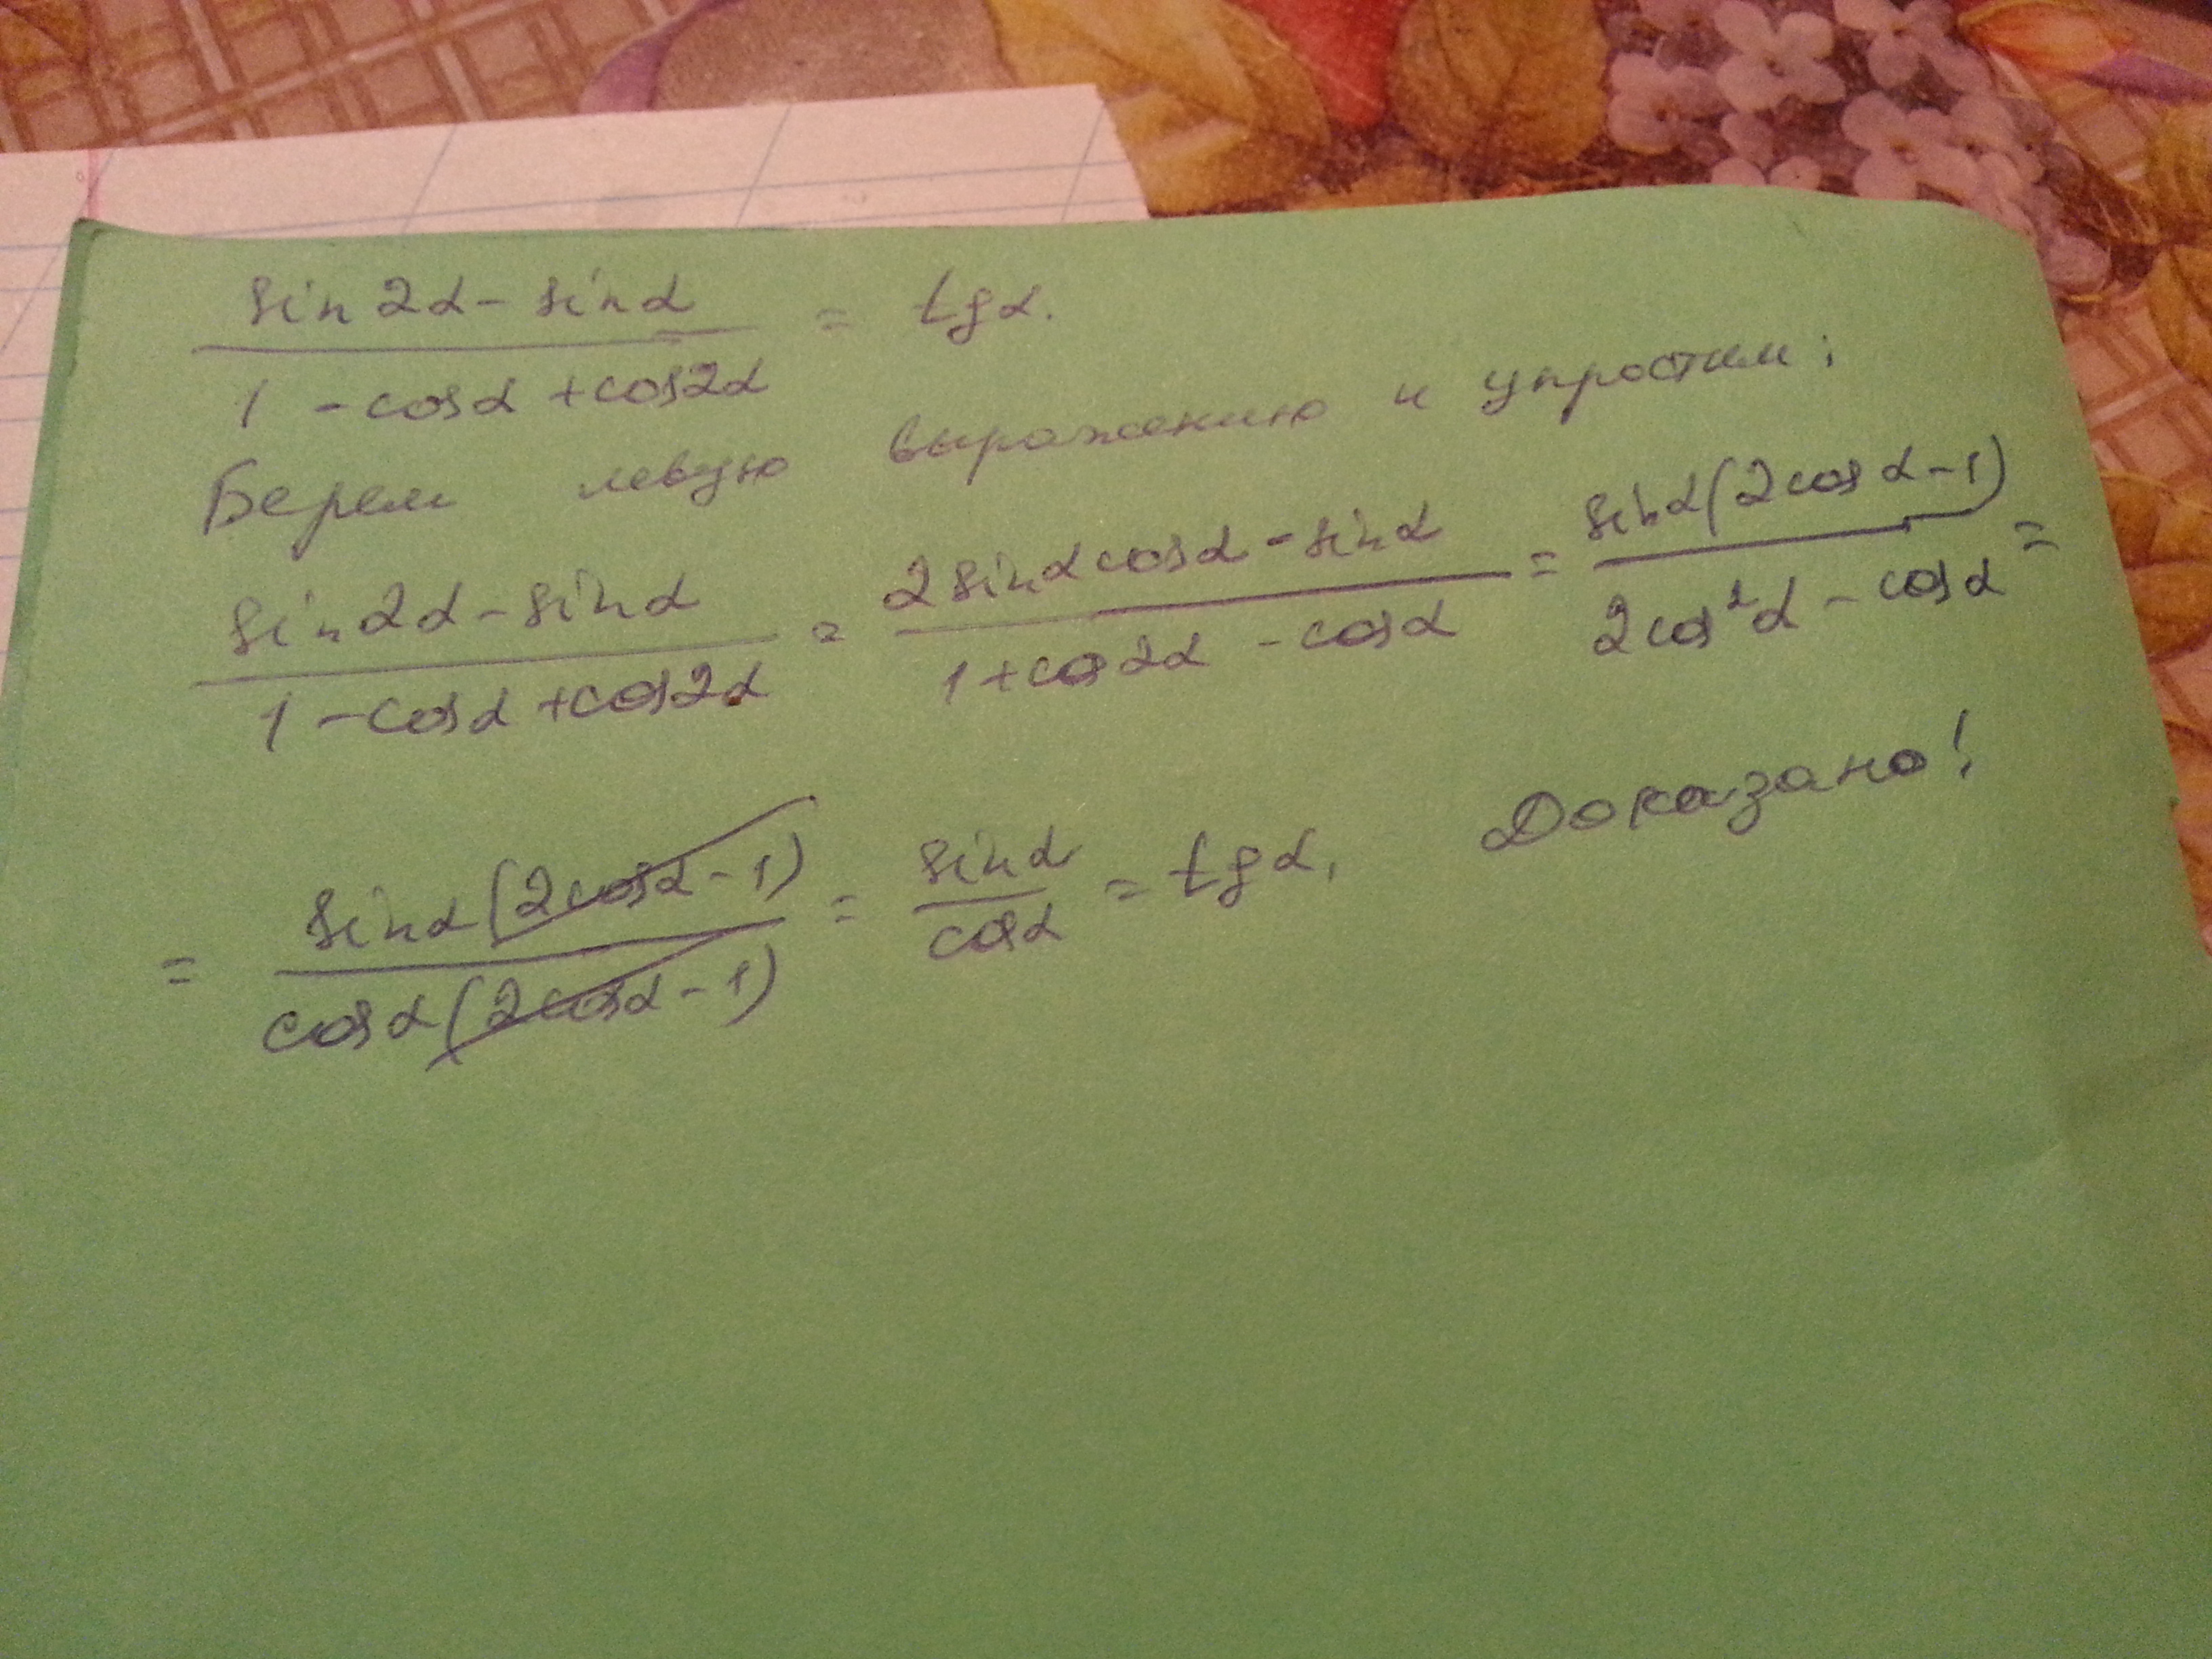 sin2α - sinα / 1 - cosα + cos2α = tgα.
Берем левую выражению и упростим:
sin2α - sinα / 1 - cosα + cos2α = 2sinαcosα - sinα / 1 + cos2α - cosα = sinα(2cosα - 1) / 2cos²α - cosα =
= sinα(2cosα - 1) / cosα(2cosα - 1) = sinα / cosα = tgα, Доказано!